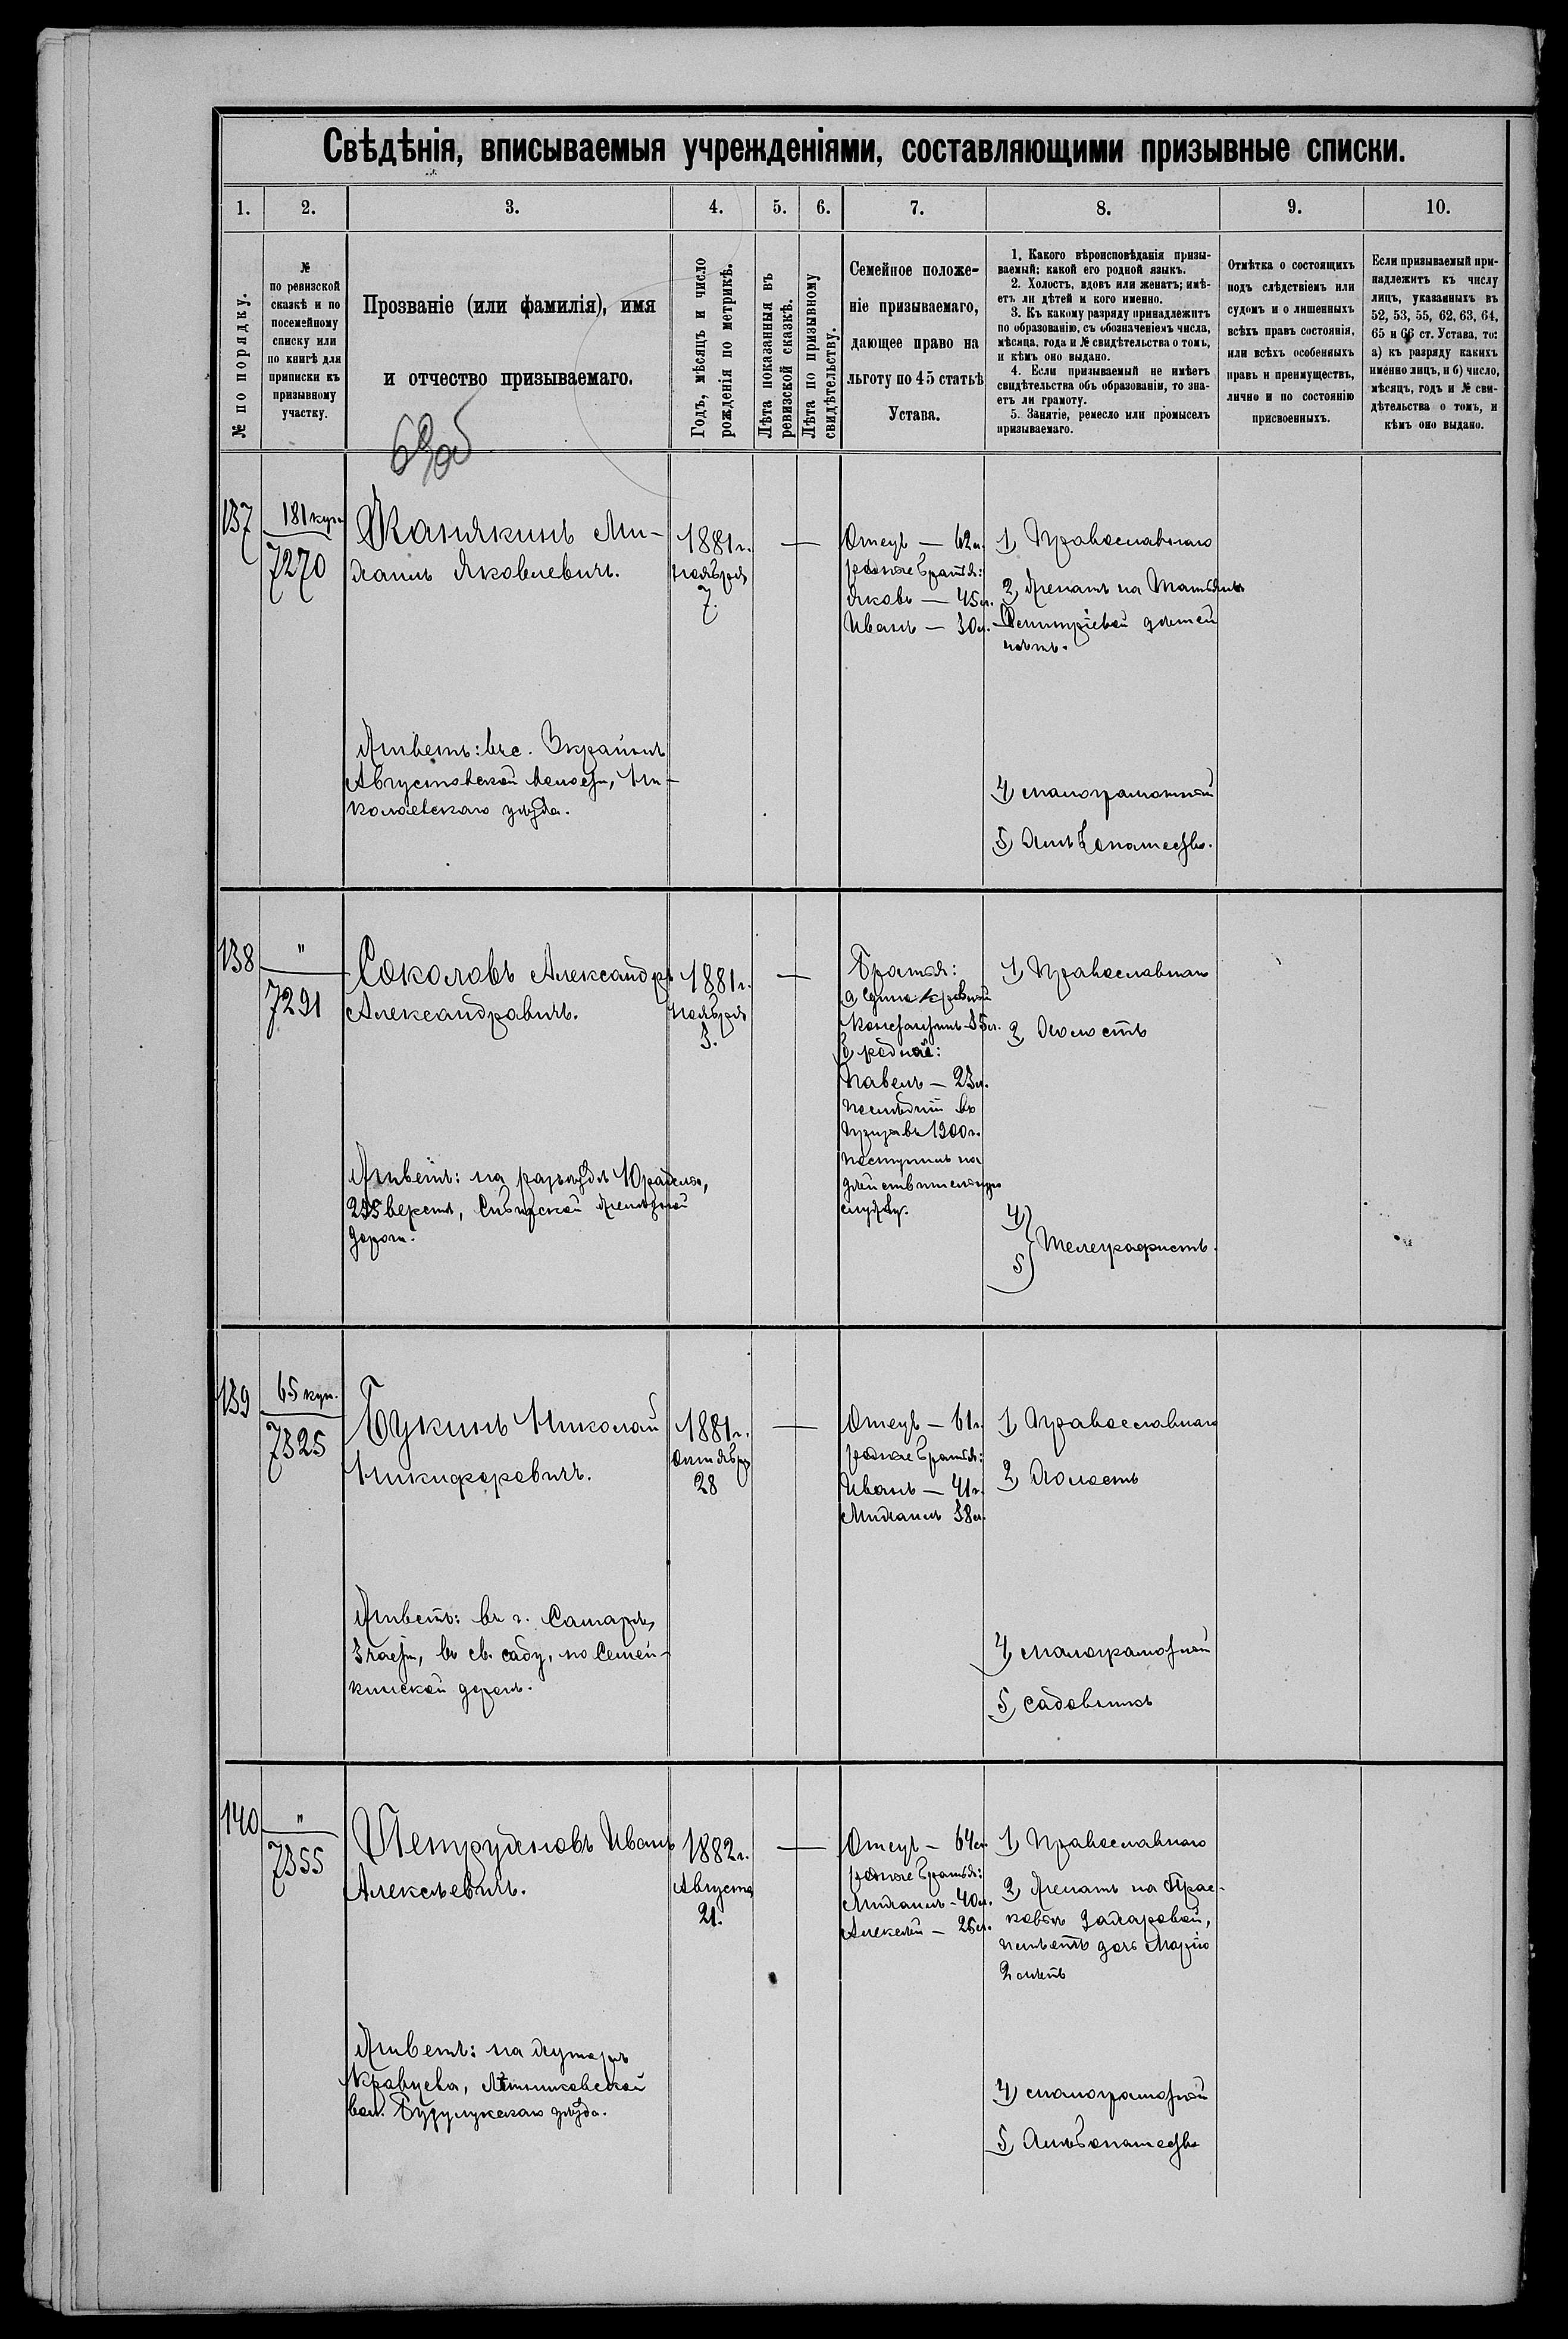 Свѣдѣнія, вписываемыя учрежденіями, составляющими призывные списки.
1. 2. 3. 4. 5. 6. 7. 8. 9. 10.
№ по порядку.
№
по ревизской
сказкѣ и по
посемейному
списку или
по книгѣ для
приписки къ
призывному
участку.
Прозваніе (или фамилія), имя
и отчество призываемаго.
Годъ, мѣсяцъ и число
рожденія по метрикѣ.
Лѣта показанныя въ
ревизской сказкѣ.
Лѣта по призывному
свидѣтельству.
Семейное положе-
ніе призываемаго,
дающее право на
льготу по 45 статьѣ
Устава.
1. Какого вѣроисповѣданія призы-
ваемый; какой его родной языкъ.
2. Холостъ, вдовъ или женатъ; имѣ-
етъ ли дѣтей и кого именно.
3. Къ какому разряду принадлежитъ
по образованію, съ обозначеніемъ числа,
мѣсяца, года и № свидѣтельства о томъ,
и кѣмъ оно выдано.
4. Если призываемый не имѣетъ
свидѣтельства объ образованіи, то зна-
етъ ли грамоту.
5. Занятіе, ремесло или промыселъ
призываемаго.
Отмѣтка о состоящихъ
подъ слѣдствіемъ или
судомъ и о лишенныхъ
всѣхъ правъ состоянія,
или всѣхъ особенныхъ
правъ и преимуществъ,
лично и по состоянію
присвоенныхъ.
Если призываемый при-
надлежитъ къ числу
лицъ, указанныхъ въ
52, 53, 55, 62, 63, 64,
65 и 66 ст. Устава, то:
а) къ разряду какихъ
именно лицъ, и б) число,
мѣсяцъ, годъ и № сви-
дѣтельства о томъ, и
кѣмъ оно выдано.
137
181 куп.
7270
Канякинъ Ми-
хаилъ Яковлевичъ.
Живетъ: въ с.
Августовской волости, Ни-
колаевскаго уѣзда.
1881 г.
Ноября
7.
—
Отецъ — 62 л.
родные братья:
Яковъ — 45 л.
Иванъ — 30 л.
1) Православнаго
2) Женатъ на Татьянѣ
Димитріевой дѣтей
нѣтъ.
4) малограмотный
5) Хлѣбопашество.
138
"
7291
Соколовъ Александръ
Александровичъ.
Живетъ: на разъѣздѣ
верстѣ, Сибирской желѣзной
дороги.
1881 г.
Ноября
3.
—
Братья:
а) единокровный
Константинъ — 35 л.
б) родной:
Павелъ — 23 л.
послѣдній въ
призывъ 1900 г.
поступилъ на
дѣйствительную
службу.
1) Православнаго
2) Холостъ
4)
5) Телеграфистъ.
139
65 куп.
7325
Букинъ Николай
Никифоровичъ.
Живетъ: въ г. Самарѣ,
3 части, въ св. саду, по Семей-
кинской дорогѣ.
1881 г.
Октября
28
—
Отецъ — 61 г.
родные братья:
Иванъ — 41 г.
Михаилъ 38 л.
1) Православнаго
2) Холостъ
4) малограмотный
5) садовникъ
140
"
7355
Петрухновъ Иванъ
Алексѣевичъ.
Живетъ: на хуторѣ
Кравцева,
вол. Бузулукскаго уѣзда.
1882 г.
Августа
21.
—
Отецъ — 64 л.
родные братья:
Михаилъ — 40 л.
Алексѣй — 26 л.
1) Православнаго
2) Женатъ на Прас-
ковьѣ Захаровой,
имѣетъ дочь Марію
4) малограмотный
5) Хлѣбопашество